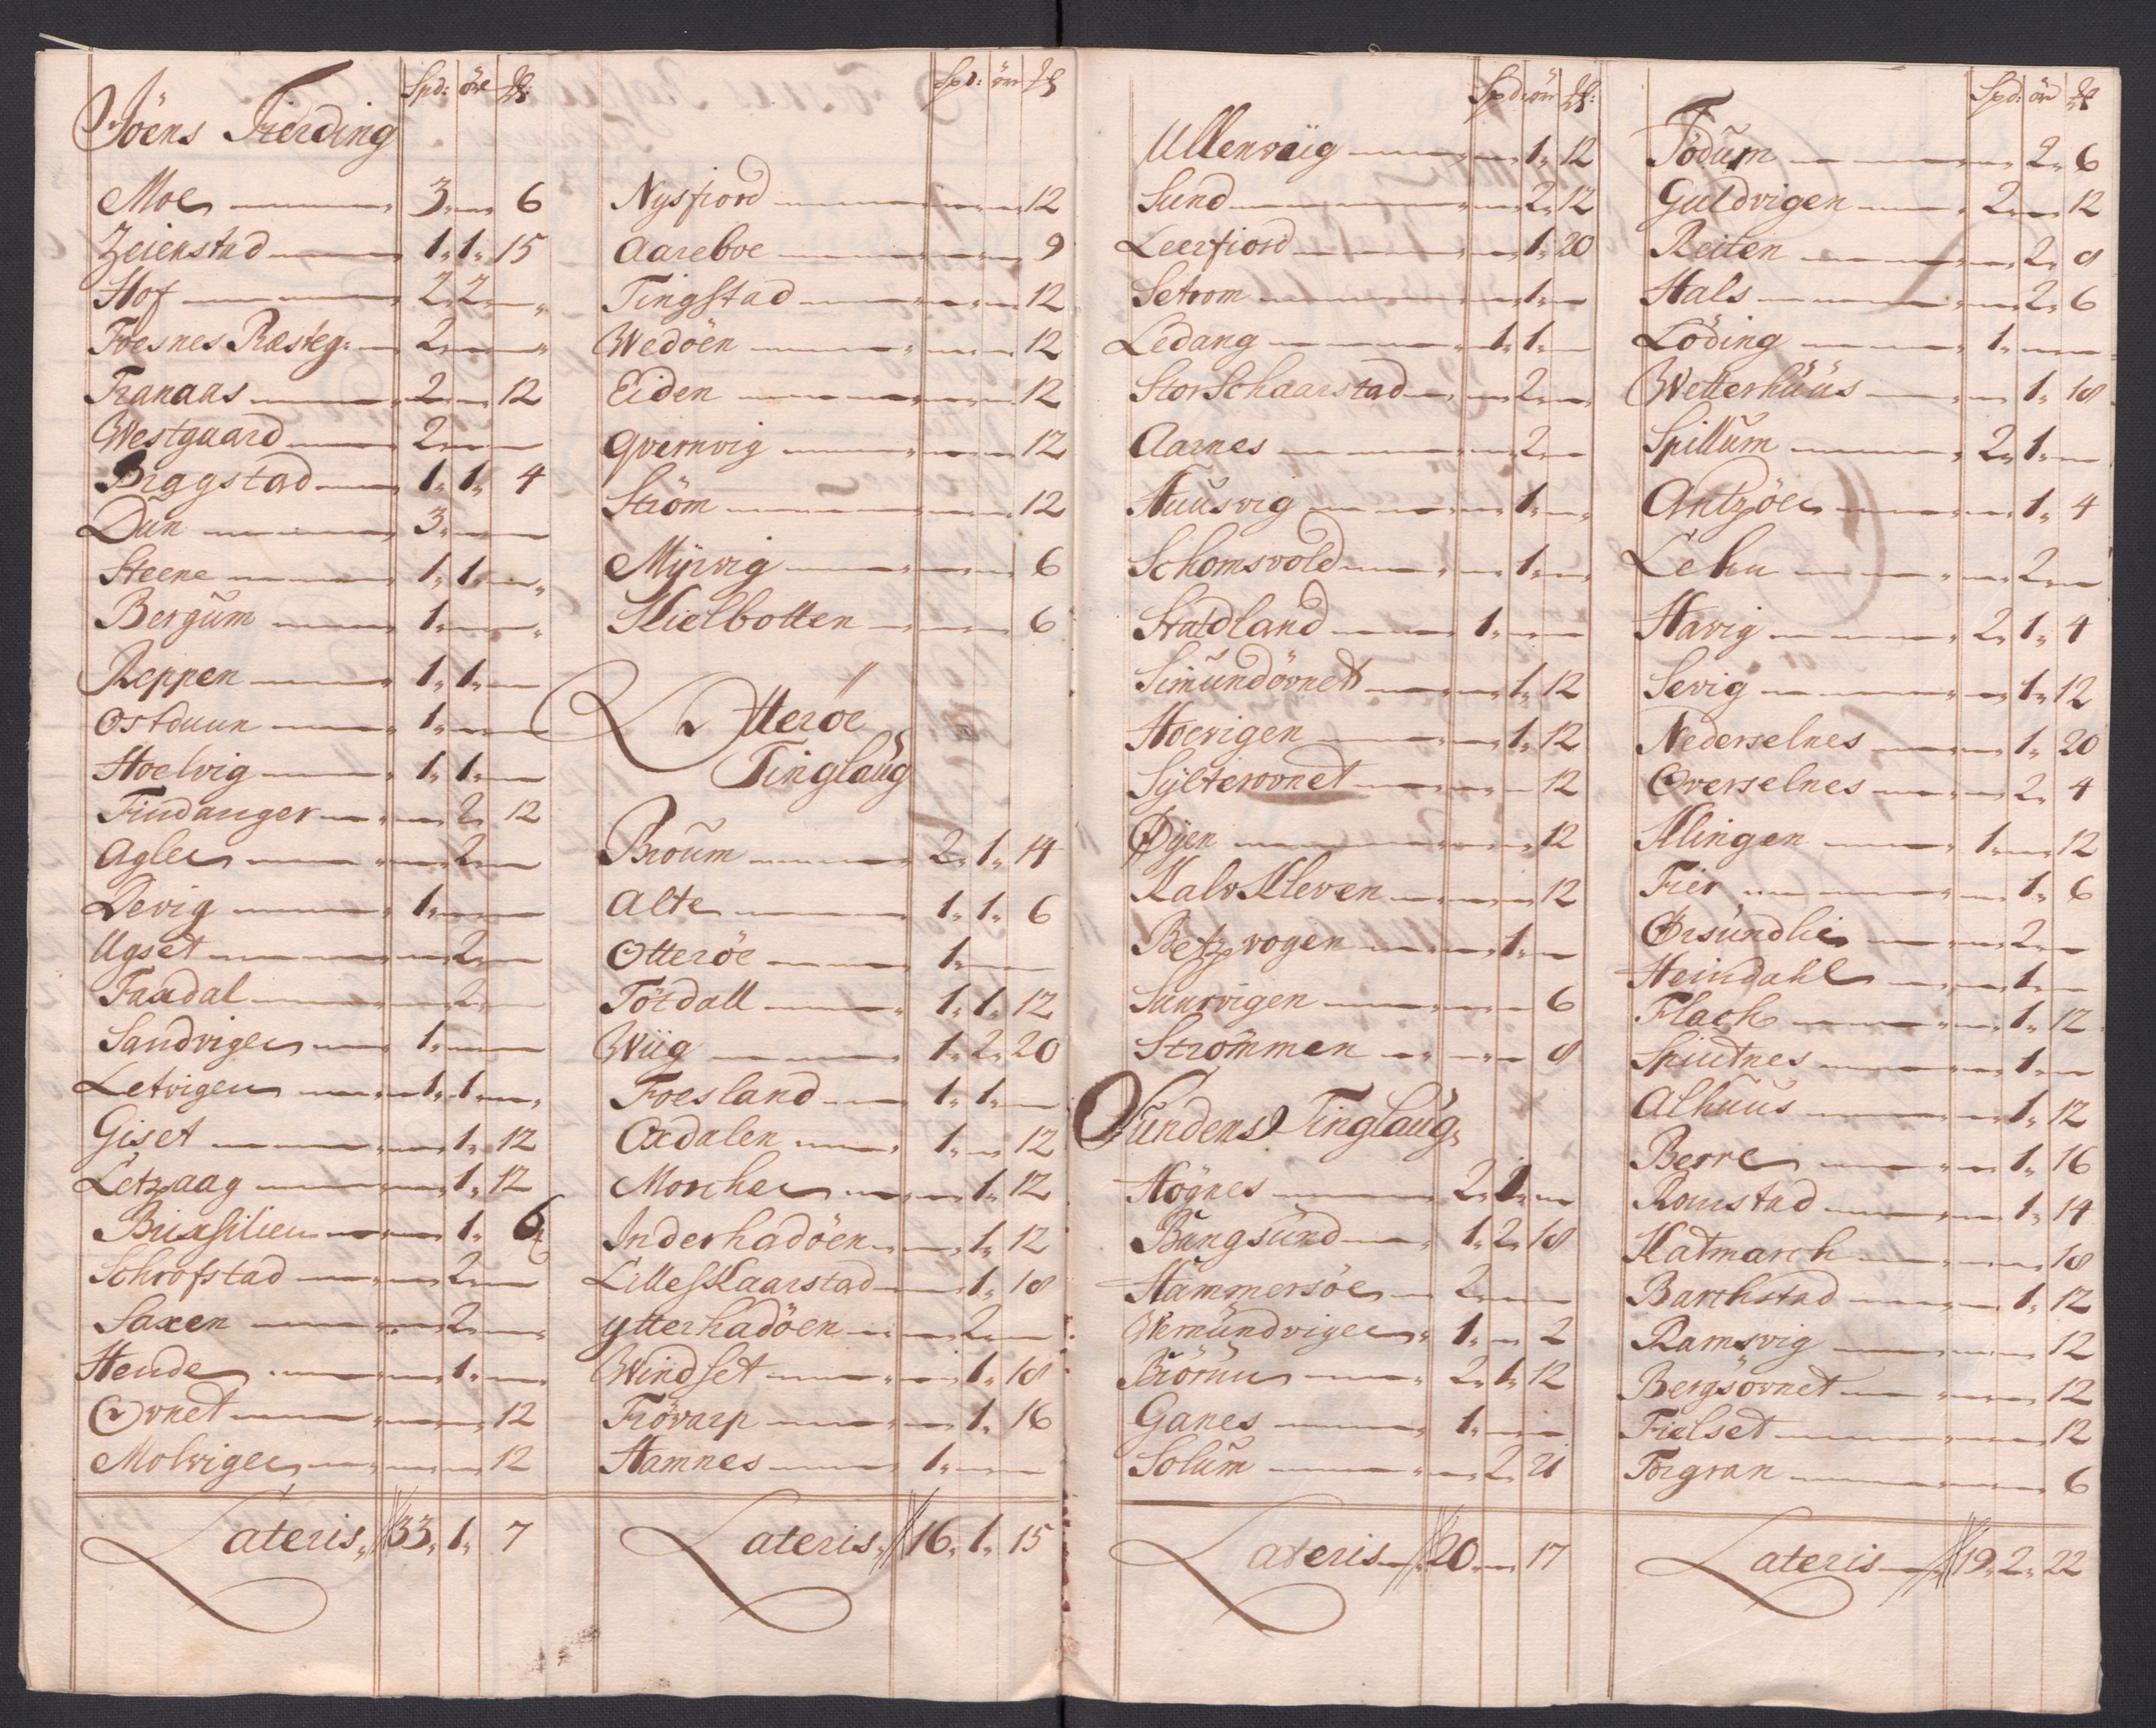 Spd: öre ß:
Jöens Fierding
Moe 3 " 6
Zeienstad 1 " 1 " 15
Hof 2 " 2 "
Foesnes Præsteg: 2 "
Tranaas 2 " 12
Westgaard 2
Biggstad 1 " 1 " 4
Dun 3
Steene 1 " 1
Bergum 1
Reppen 1 " 1
Ostduun 1
Hoelvig 1 " 1
Findanger 2 12
Agle 2
Devig 1
Ugset 2
Faxdal 2
Sandvigen 1
Letvigen 1 " 1
Giset 1 " 12
Letzaag 1 " 12
Brixsilien 1 " 6
Schrofstad 2
Saxen 2
Hende 1
Ovnet 12
Molvigen 12
Lateris 33 " 1 " 7
Spd: öre ß
Nysfiord 12
Aareboe 9
Tingstad 12
Wedöen 12
Eiden 12
Qvernvig 12
Ström 12
Myrvig 6
Kielbotten 6
Otteröe
Tinglaug
Broum 2 " 1 " 14
Alte 1 " 1 " 6
Otteröe 1
Tötdall 1 " 1 " 12
Wiig 1 " 2 " 20
Foesland 1 " 1
Oxdalen 1 " 12
Morche 1 " 12
Inderhadöen 1 " 12
LilleSkaarstad 1 " 18
Ytterhadöen 2
Windset 1 " 18
Frövarp 1 " 16
Hamnes 1
Lateris 16 " 1 " 15
Spd: ör ß:
Ullenvaig 1 " 12
Sund 2 " 12
Leerfiord 1 " 20
Setrom 1
Ledang 1 " 1
StorSchaarstad 2
Aarnes 2
Huusvig 1
Schomsvold 1
Statdland 1
Simundövnet 1 " 12
Hoevigen 1 " 12
Sylterovnet 12
Øyen 12
KalvKleven 12
Betzvogen 1
Saurvigen 6
Strömmen 8
Sundens Tinglaug
Högnes 2 " 1
Bangsund 1 " 2 " 18
Hammersöe 2
Wemundvigen 1 " 2
Brörum 2 " 1 " 12
Ganes 1
Solum 2 " 21
Lateris 20 " 17
Spd: ör ß
Födum 2 " 6
Guldvigen 2 " 12
Reiten 2 " 8
Hals 2 " 6
Löding 1
Wetterhuus 1 " 18
Spillum 2 " 1
Antzöe 1 " 4
Lehn 2
Havig 2 " 1 " 4
Sevig 1 " 12
Nederselnes 1 " 20
Overselnes 2 " 4
Klingen 1 " 12
Fier 1 " 6
Örsundlie 2
Heindahl 1
Flach 1 " 12
Spiutnes 1
Alhuus 1 " 12
Berre 1 " 16
Romstad 1 " 14
Katmarch 18
Barchstad 1 " 12
Ramsvig 12
Bergsövnet 12
Fielset 12
Forgran 6
Lateris 19 " 2 " 22